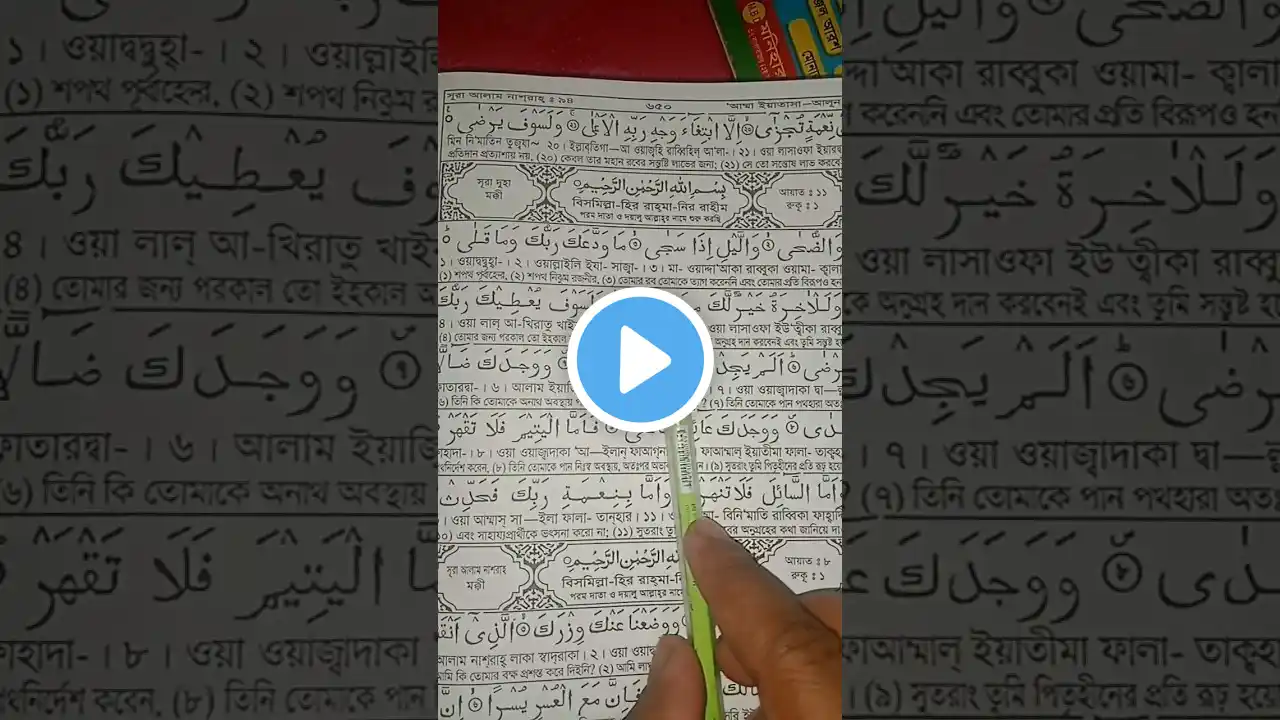 মনিহার
সূরা আলাম নাশ্‌রাহ্ : ৯৪ ৬৫০ 'আম্মা ইয়াতাসা—আলূন
نِّعْمَةٍ تُجْزٰٓى ۙ اِلَّا ابْتِغَآءَ وَجْهِ رَبِّهِ الْاَعْلٰى ۚ وَلَسَوْفَ يَرْضٰى
মিন নি'মাতিন তুজ্‌যা~ ২০। ইল্লাব্‌তিগা—আ ওয়াজ্‌হি রাব্বিহিল্ আ'লা-। ২১। ওয়া লাসাওফা ইয়ারদ্বা
প্রতিদান প্রত্যাশায় নয়, (২০) কেবল তার মহান রবের সন্তুষ্টি লাভের জন্য; (২১) সে তো সন্তোষ লাভ করবে
সূরা দুহা
মক্কী
بِسْمِ اللّٰهِ الرَّحْمٰنِ الرَّحِيْمِ
বিসমিল্লা-হির রাহ্‌মা-নির রাহীম
পরম দাতা ও দয়ালু আল্লাহ্‌র নামে শুরু করছি
আয়াত : ১১
রুকূ : ১
وَالضُّحٰى ۙ وَالَّيْلِ اِذَا سَجٰى ۙ مَا وَدَّعَكَ رَبُّكَ وَمَا قَلٰى
১। ওয়াদ্বদ্বুহা-। ২। ওয়াল্লাইলি ইযা- সাজ্বা-। ৩। মা- ওয়াদ্দা'আকা রাব্বুকা ওয়ামা- ক্বালা
(১) শপথ পূর্বাহ্নের, (২) শপথ নিঝুম রজনীর, (৩) তোমার রব তোমাকে ত্যাগ করেননি এবং তোমার প্রতি বিরূপও হন
وَلَلْاٰخِرَةُ خَيْرٌ لَّكَ وَلَسَوْفَ يُعْطِيْكَ رَبُّكَ
৪। ওয়া লাল্ আ-খিরাতু খাই ওয়া লাসাওফা ইউ'ত্বীকা রাব্বু
(৪) তোমার জন্য পরকাল তো ইহকাল অনুগ্রহ দান করবেনই এবং তুমি সন্তুষ্ট হ
رْضٰى ۙ اَلَمْ يَجِدْكَ وَوَجَدَكَ ضَآلًّا
ফাতারদ্বা-। ৬। আলাম ইয়াজি ৭। ওয়া ওয়াজ্বাদাকা দ্বা—
৬) তিনি কি তোমাকে অনাথ অবস্থায় (৭) তিনি তোমাকে পান পথহারা অত
هَدٰى ۙ وَوَجَدَكَ فَاَمَّا الْيَتِيْمَ فَلَا تَقْهَرْ
হাদা-। ৮। ওয়া ওয়াজ্বাদাকা 'আ—ইলান্ ফাআগ্‌ ফাআম্মাল্ ইয়াতীমা ফালা- তাক্বহা
নির্দেশ করেন, (৮) তিনি তোমাকে পান নিঃস্ব অবস্থায়, অতঃপর অভা (৯) সুতরাং তুমি পিতৃহীনের প্রতি রূঢ় হয়ো
وَاَمَّا السَّآئِلَ فَلَا تَنْهَرْ وَاَمَّا بِنِعْمَةِ رَبِّكَ فَحَدِّثْ
ওয়া আম্মাস্ সা—ইলা ফালা- তান্‌হার। ১১। ও মা- বিনি'মাতি রাব্বিকা ফাহাদ্দি
১০) এবং সাহায্যপ্রার্থীকে ভৎসনা করো না; (১১) সুতরাং তু বের অনুগ্রহের কথা জানিয়ে দা
সূরা আলাম নাশরাহ
মক্কী
اللّٰهِ الرَّحْمٰنِ الرَّحِيْمِ
বিসমিল্লা-হির রাহ্‌মা-নি
পরম দাতা ও দয়ালু আল্লাহ্‌র নামে
আয়াত : ৮
রুকূ : ১
وَوَضَعْنَا عَنْكَ وِزْرَكَ ۙ الَّذِىْٓ اَنْقَ
আলাম নাশ্‌রাহ্ লাকা স্বাদ্‌রাকা। ২। ওয়া ওয়াদ্বা
আমি কি তোমার বক্ষ প্রশস্ত করে দিইনি? (২) আমি লা
فَاِنَّ مَعَ الْعُسْرِ يُسْرًا ۙ اِنَّ